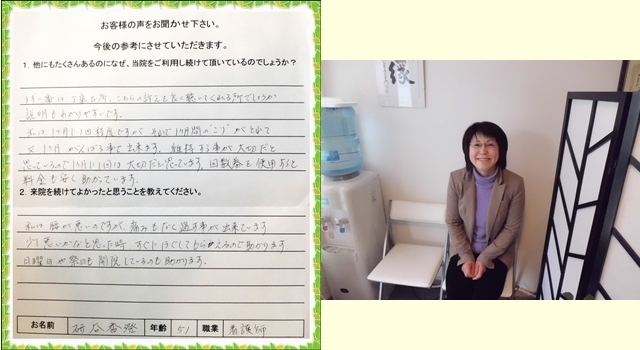 お客様の声をお聞かせ下さい。
今後の参考にさせていただきます。
1. 他にもたくさんあるのになぜ、当院をご利用し続けて頂いているのでしょうか?
よく一番は丁寧な所、こちらの訴えも良く聴いてくれる所でしょうか
説明もわかりやすいです。
私は1ヶ月に1回程度ですが それで1ヶ月間の"コリ"がとれて
又1ヶ月がんばる事が出来ます。維持する事が大切だと
思っているので1ヶ月に1回は大切だと思っています。回数券を使用すると
料金も安く助かっています。
2. 来院を続けてよかったと思うことを教えてください。
私は腰が悪いのですが、痛みもなく過す事が出来ています
少し悪いかなと思った時、すぐにほぐしてもらえるので助かります
日曜日や祭日も開院しているのも助かります。
お名前 研谷香澄 年齢 51 職業 看護師